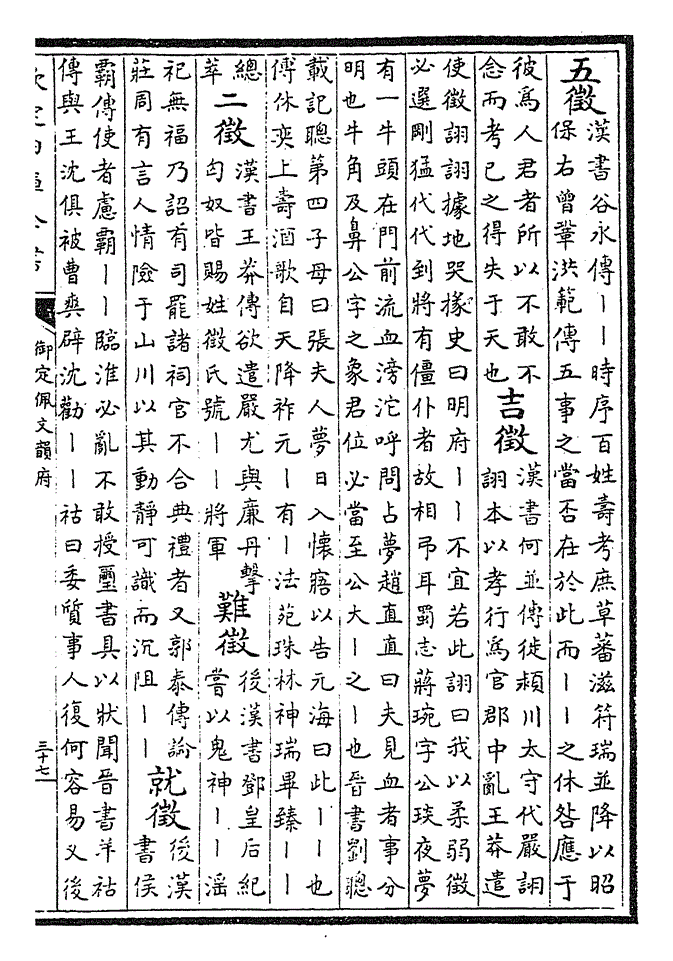 五徵
漢書谷永傳丨丨時序百姓壽考庶草蕃滋符瑞並降以昭
保右曾鞏洪範傳五事之當否在於此而丨丨之休咎應于
彼爲人君者所以不敢不
念而考己之得失于天也
吉徵
漢書何並傳徙潁川太守代嚴詡
詡本以孝行爲官郡中亂王莽遣
使徵詡詡據地哭掾史曰明府丨丨不宜若此詡曰我以柔弱徵
必選剛猛代代到將有僵仆者故相弔耳蜀志蔣琬字公琰夜夢
有一牛頭在門前流血滂沱呼問占夢趙直直曰夫見血者事分
明也牛角及鼻公字之象君位必當至公大丨之丨也晉書劉聰
載記聰第四子母曰張夫人夢日入懷寤以告元海曰此丨丨也
傅休奕上壽酒歌自天降祚元丨有丨法苑珠林神瑞畢臻丨丨
總
萃
二徵
漢書王莽傳欲遣嚴尤與廉丹擊
匈奴皆賜姓徵氏號丨丨將軍
難徵
後漢書鄧皇后紀
嘗以鬼神丨丨淫
祀無福乃詔有司罷諸祠官不合典禮者又郭泰傳論
莊周有言人情險于山川以其動靜可識而沉阻丨丨
就徵
後漢
書侯
霸傳使者慮霸丨丨臨淮必亂不敢授璽書具以狀聞晉書羊祜
傳與王沈俱被曹爽辟沈勸丨丨祜曰委質事人復何容易又後
欽定四庫全書
御定佩文韻府
三十七